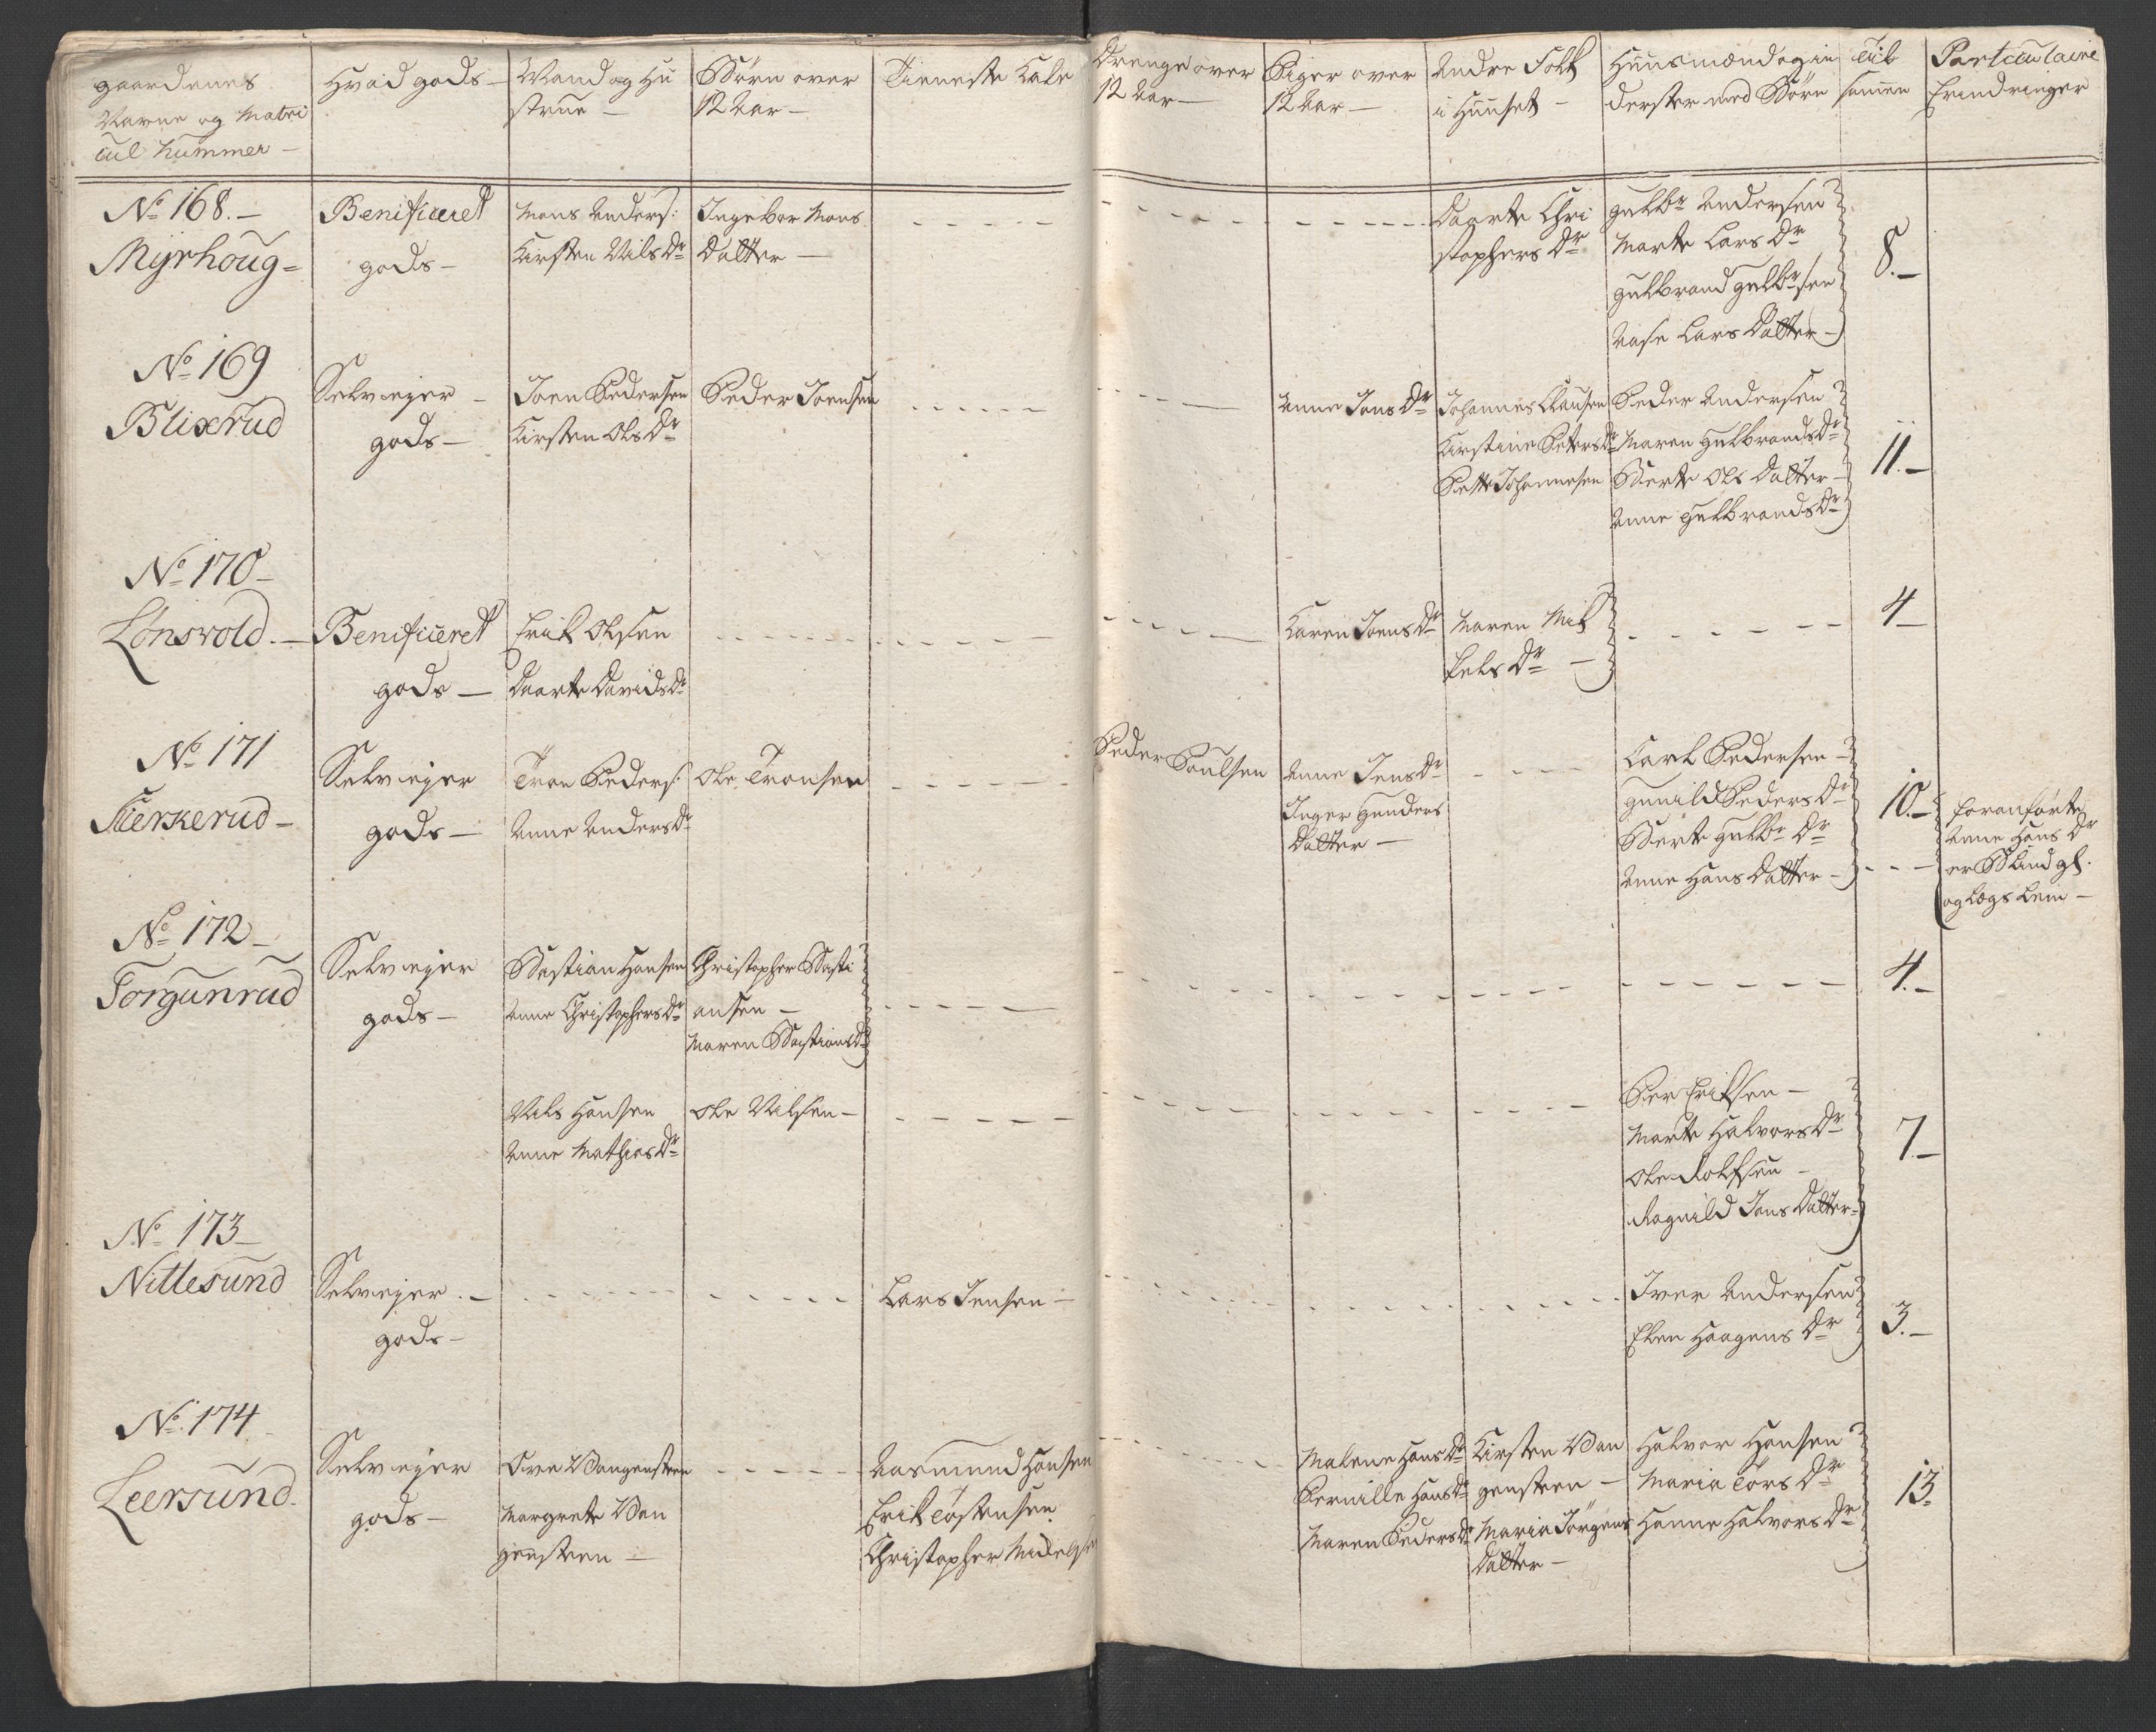 gaardenes
Navne og Matri
cul Nummer –
Hvad gods –
Mand og Hu
strue –
Børn over
12 Aar –
Tieneste Karle
Drenge over
12 Aar –
Piger over
12 Aar –
Andre Folk
i Huuset –
Huusmænd og in
derster med Børn
Til
samen
Particulaire
Erindringer
No 168. –
Myrhoug =
Benificeret
gods –
Mons Anders:
Kirsten Nils Dr
Ingebor Mons
Datter –
Daarte Chri
stophers Dr
Gulbr Andersen
Marte Lars Dr
Gulbrand Gulbrsen
Aase Lars Datter –
8. –
No 169
Blixrud
Selveyer –
gods –
Joen Pedersen
Kirsten Ols Dr
Peder Joensen
Anne Jons Dr
Johannes Clausen
Kirstine Peters Dr
Peter Johannesen
Peder Andersen
Maren Gulbrands Dr
Berte Ols Datter –
Anne Gulbrands Dr
11. –
No 170 –
Lönsvold. –
Benificeret
gods –
Erik Olsen
Daarte Davids Dr
Karen Joens Dr
Maren Mik
kels Dr –
4 –
No 171
Kierkerud –
Selveyer
gods –
Tron Peders:
Anne Anders Dr
Ole Tronsen
Peder Poulsen
Anne Jens Dr
Inger Gunders
Datter –
Carl Pedersen –
Gunild Peders Dr
Berte Gulbr Dr
Anne Hans Datter –
10. –
foranførte
Anne Hans Dr
er Blind gl.
og Lægs Lem –
No 172 –
Torgunrud
Selveyer
gods –
Bastian Hansen
Anne Christophers Dr
Christopher Basti
ansen –
Maren Bastians Dr
4. –
Nils Hansen
Anne Mathias Dr
Ole Nilsen –
Per Eriksen –
Marte Halvors Dr
Ole Rolfsen –
Ragnild Jons Datter –
7 –
No 173 –
Nittesund
Selveyer. –
gods –
Lars Jensen –
Iver Andersen
Elen Haagens Dr
3. –
No 174
Leersund.
Selveyer
gods –
Ove Wangensteen
Margrete Wan
gensteen –
Aasmund Hansen
Erik Tostensen
Christopher Mikkelsen
Malene Hans Dr
Pernille Hans Dr
Maren Peders Dr
Kirsten Wan
gensteen –
Maria Jörgens
Datter –
Halvor Hansen
Maria Tors Dr
Hanne Halvors Dr
13.